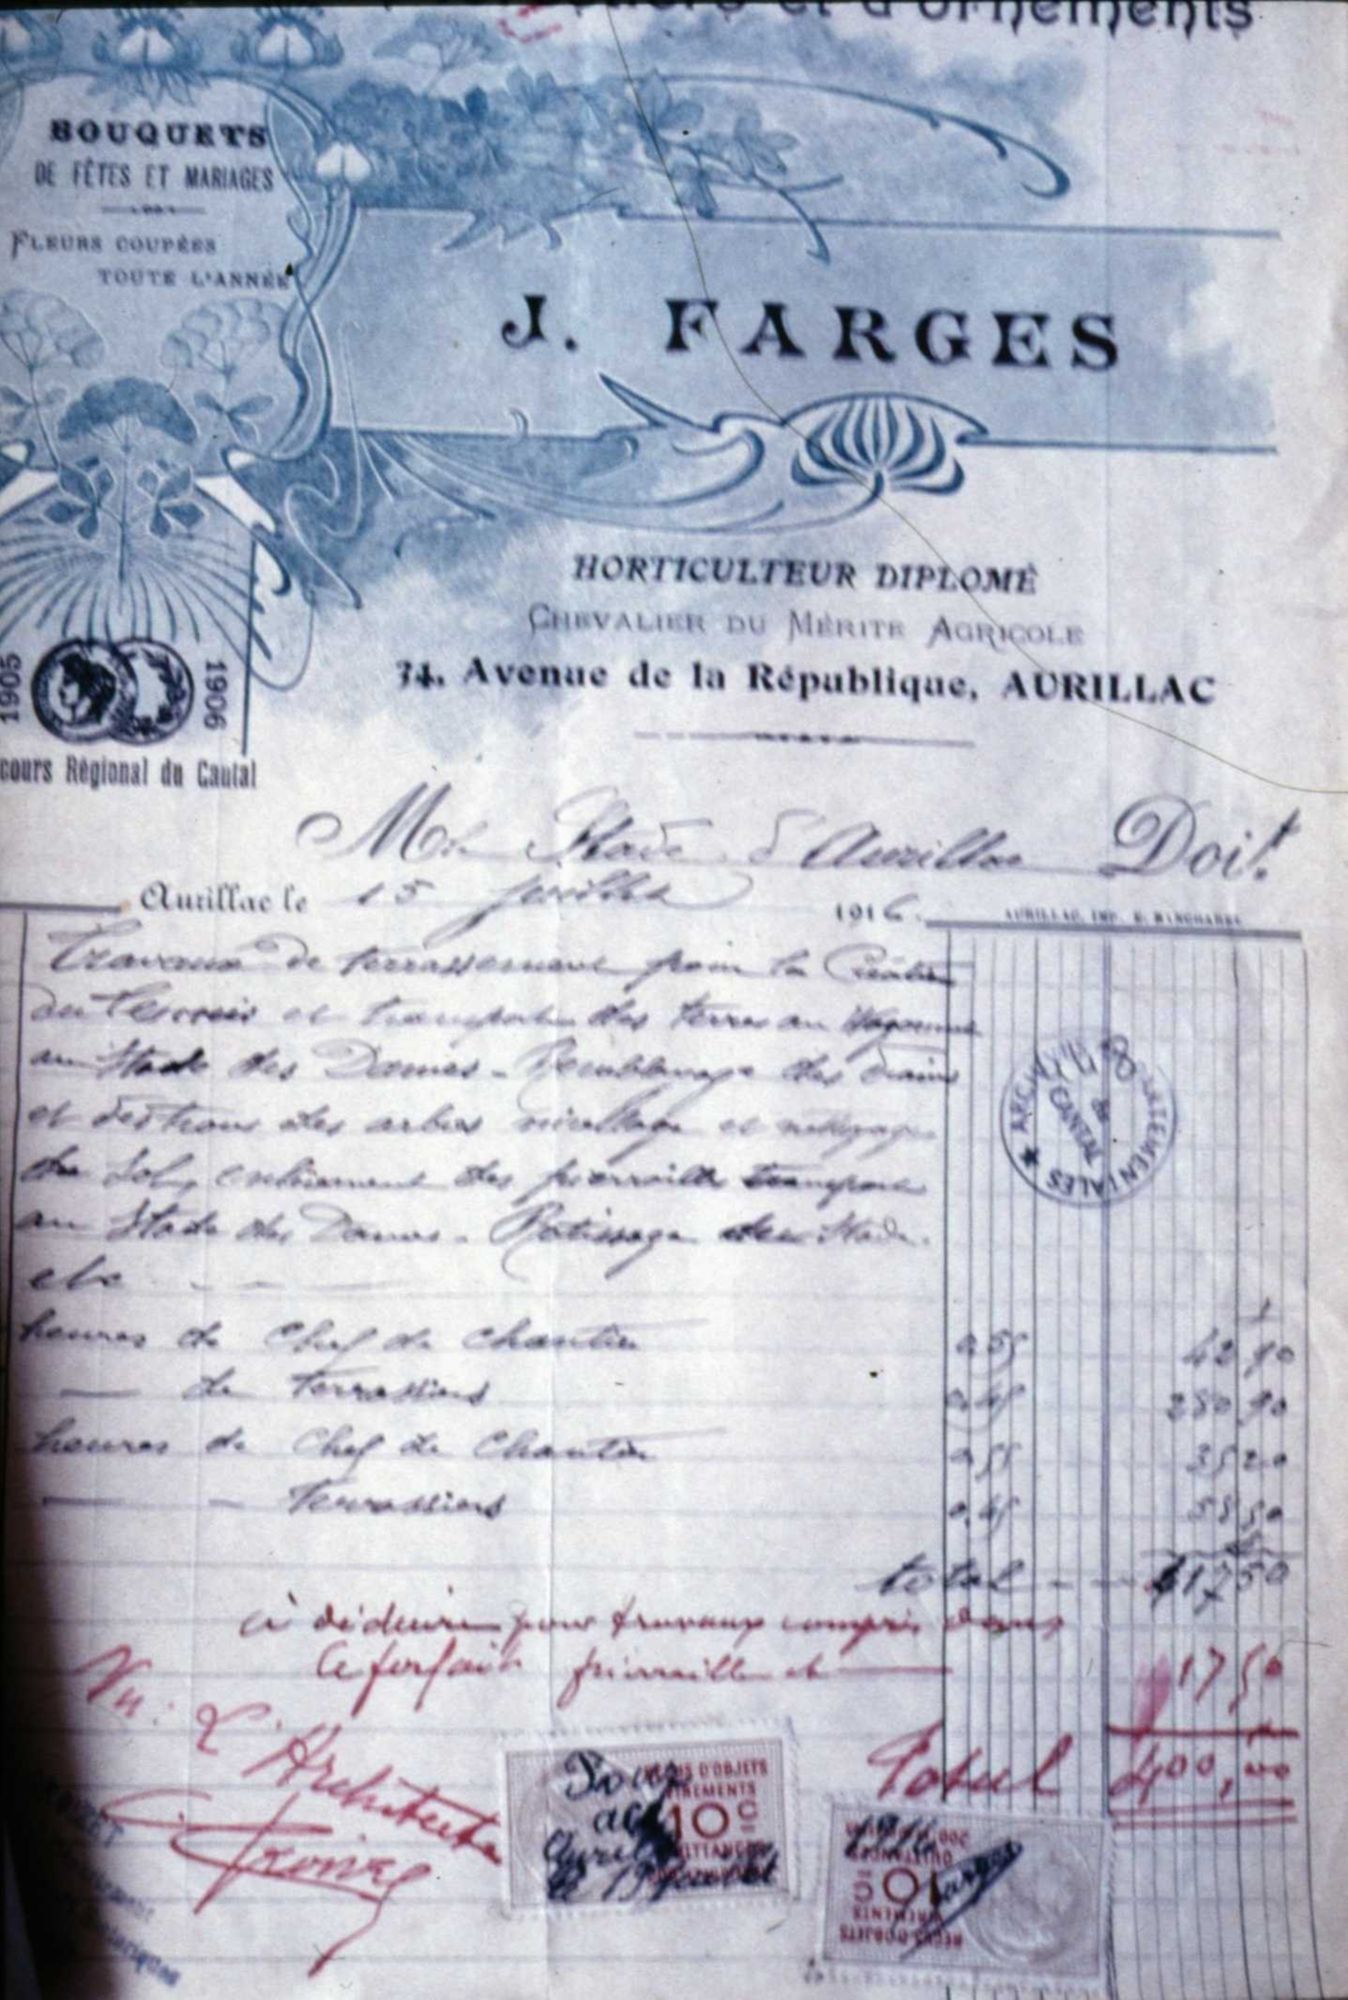 et d'Ornements
BOUQUETS
DE FÊTES ET MARIAGES
FLEURS COUPÉES
TOUTE L'ANNÉE
J. FARGES
HORTICULTEUR DIPLOMÉ
CHEVALIER DU MÉRITE AGRICOLE
74. Avenue de la République, AURILLAC
1905
1906
cours Régional du Cantal
Stade d'Aurillac Doit
Aurillac le 15 Juillet 1916
AURILLAC, IMP.
Travaux de terrassement pour la Création
du et transport des terres au
au Stade des Dames - des drains
et des trous des arbres nivellage et nettoyage
du Sol, enlèvement des pierraille transport
au Stade des Dames - Ratissage du Stade
etc
ARCHIVES DÉPARTEMENTALES
CANTAL
heures de Chef de chantier 0,55 42 90
— de terrassiers 0,45 280 90
heures de Chef de Chantier 0,55 35 20
— - terrassiers 0,45 58 50
total - - 417 50
à déduire pour travaux compris dans
ce forfait pierraille et 17 50
Total 400,00
Vu:
L'Architecte
Pour
acquit
10c
Aurillac
le 15 Juillet
1916
10c
Farges